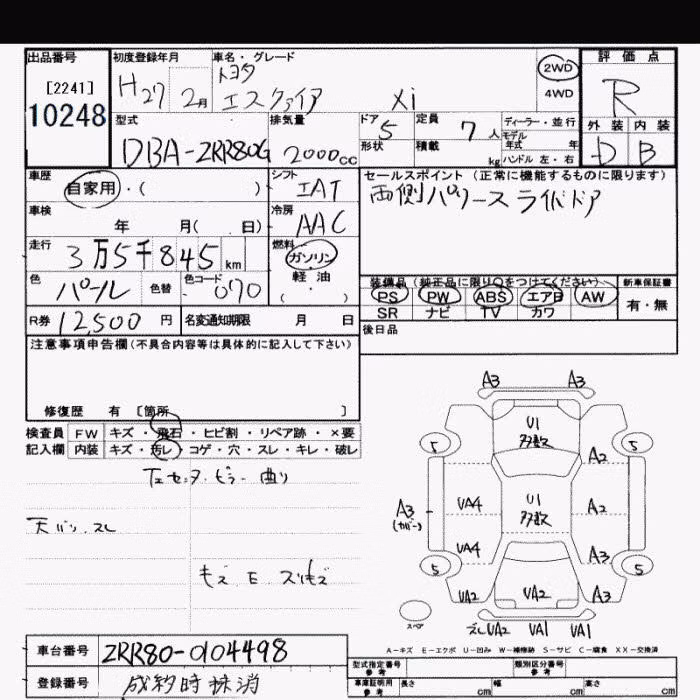 出品番号 初度登録年月 車名・グレード 評価点
[2241] H27 2月 トヨタ 2WD
10248 エスクァイア Xi 4WD R
型式 排気量 ドア 5 定員 7人 ディーラー・並行 外装 内装
DBA-ZRR80G 2000cc 形状 積載 kg モデル年式 年 ハンドル 左・右 D B
車歴 シフト セールスポイント(正常に機能するものに限ります)
自家用・( ) IAT 両側パワースライドドア
車検 冷房
年 月( 日) AAC
走行 燃料
3万5千845km ガソリン
色 色替 色コード 軽油 装備品(純正品に限り○をつけてください) 新車保証書
パール 070 ・( ) PS PW ABS エアB AW 有・無
SR ナビ TV カワ
R券 12,500円 名変通知期限 月 日 後日品
注意事項申告欄(不具合内容等は具体的に記入して下さい)
修復歴 有 〔箇所 〕
検査員 FW キズ・飛石・ヒビ割・リペア跡・×要
記入欄 内装 キズ・汚レ・コゲ・穴・スレ・キレ・破レ
曲り
スレ
A3 A3
U1
多数
5 5
A2
A3 UA4 U1 A2
(カバー) 多数
UA4 A3
5 5
UA2 UA2 A3
スペア スレUA2 UA1 UA1
A-キズ E-エクボ U-凹み W-補修跡 S-サビ C-腐食 XX-交換済
車台番号 ZRR80-0104498
型式指定番号 参考 類別区分番号 参考
登録番号 成約時抹消
車庫証明用 参考 長さ cm 幅 cm 高さ cm